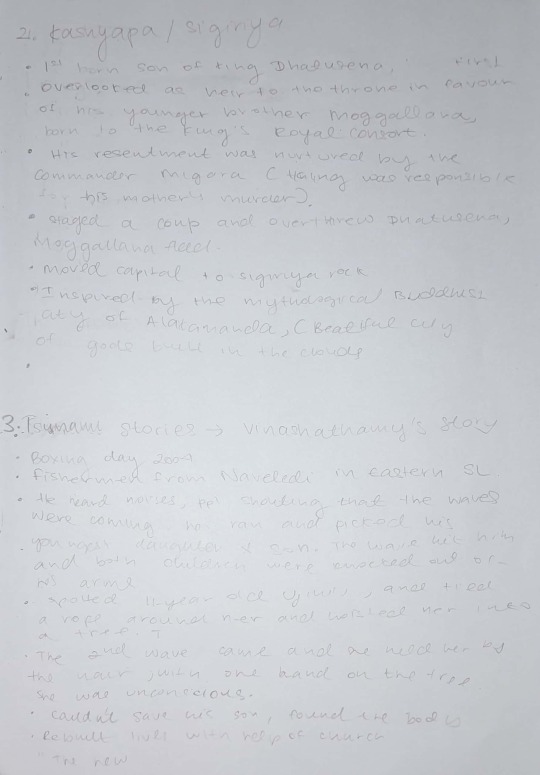 2. Kashyapa / Sigiriya
• 1st born son of King Dhatusena, First
• Overlooked as heir to the throne in favour
of his younger brother Moggallana,
born to the King's Royal consort.
• His resentment was nurtured by the
commander Migara (King was responsible
for his mother's murder).
• Staged a coup and overthrew Dhatusena,
Moggallana fled.
• Moved capital to sigiriya rock
• Inspired by the mythological Buddhist
city of Alakamanda, (Beatiful city
of gods built in the clouds
3. Tsunami stories → Vinashathamy's story
• Boxing day 2004
• fishermen from Naveladi in eastern SL
• He heard noises, ppl shouting that the waves
were coming he ran and picked his
youngest daughter & son. The wave hit him
and both children were knocked out of
his arms
• Spotted 11 year old, and tied
a rope around her and hoisted her into
a tree. T
• The 2nd wave came and he held her by
the hair, with one hand on the tree
she was unconscious.
• Couldn't save his son, found the body
• Rebuilt lives with help of church
" The new